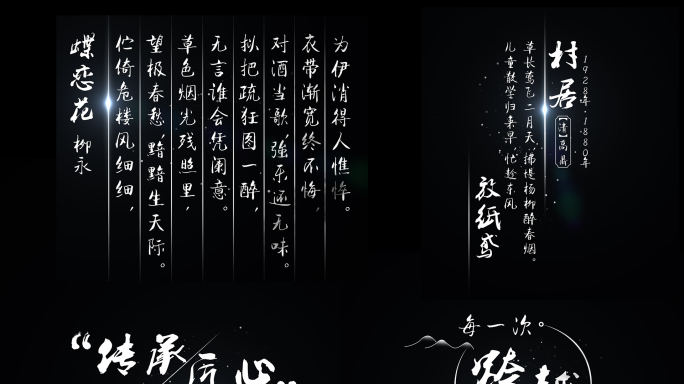 蝶恋花 柳永
伫倚危楼风细细，
望极春愁，黯黯生天际。
草色烟光残照里，
无言谁会凭阑意。
拟把疏狂图一醉，
对酒当歌，强乐还无味。
衣带渐宽终不悔，
为伊消得人憔悴。
村居
1928年-1880年
【清】高鼎
草长莺飞二月天，拂堤杨柳醉春烟。
儿童散学归来早，忙趁东风
放纸鸢
“传承匠心”
每一次。
跨越